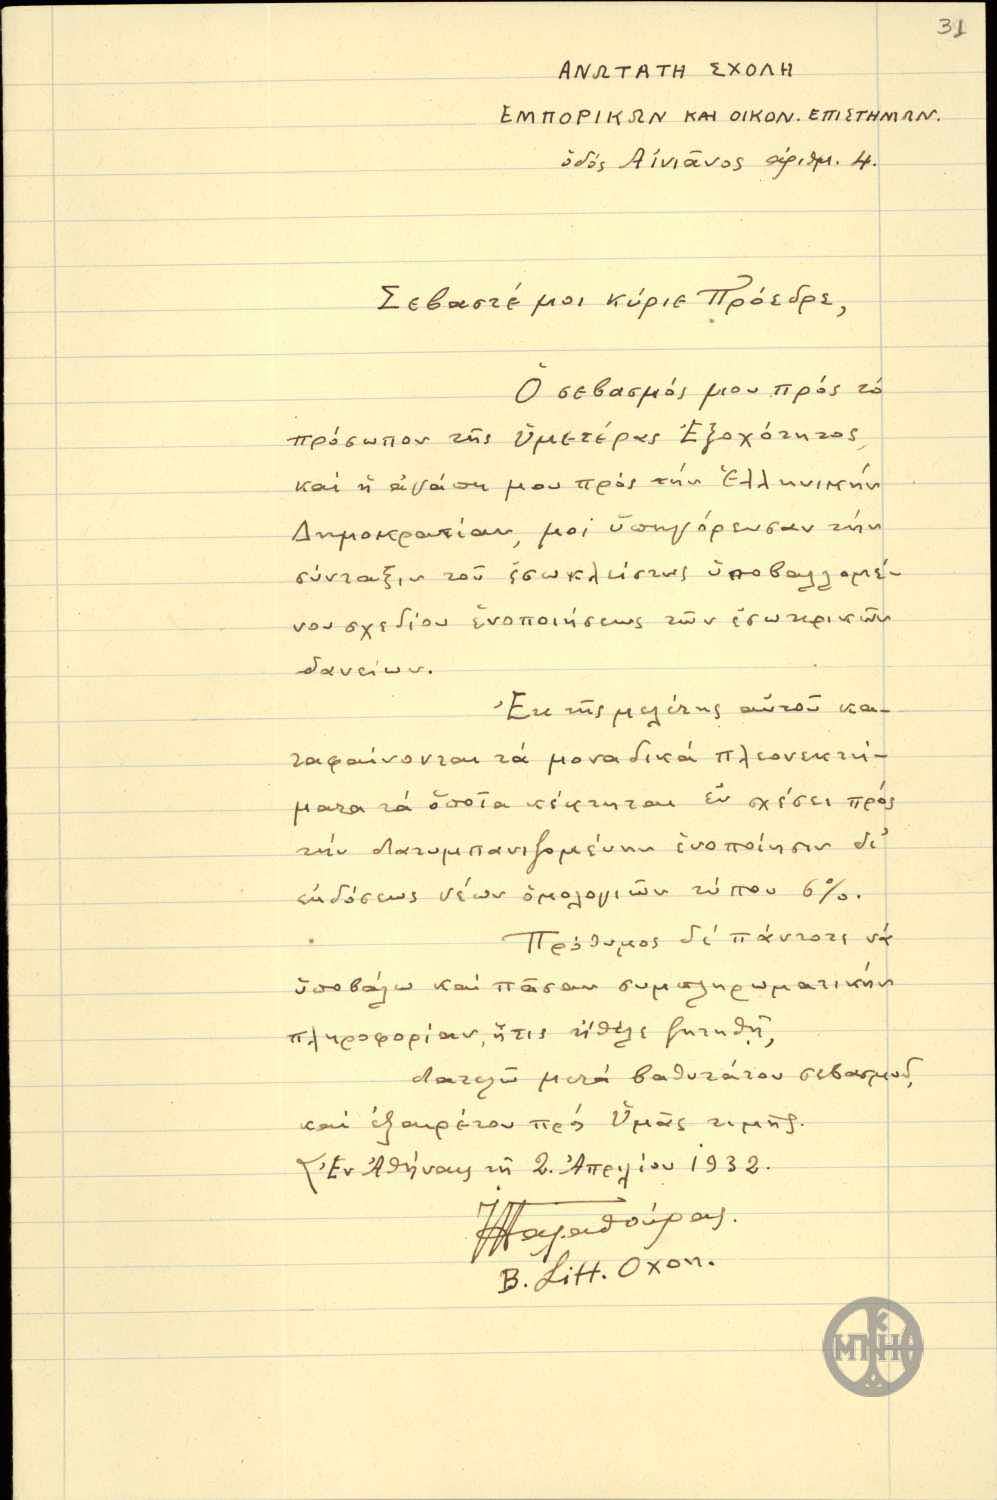 31
ΑΝΩΤΑΤΗ ΣΧΟΛΗ
ΕΜΠΟΡΙΚΩΝ ΚΑΙ ΟΙΚΟΝ. ΕΠΙΣΤΗΜΩΝ.
ὁδός Αἰνιᾶνος ἀριθμ. 4.
Σεβαστέ μοι κύριε Πρόεδρε,
Ὁ σεβασμός μου πρός τό
πρόσωπον τῆς Ὑμετέρας Ἐξοχότητος,
καί ἡ ἀγάπη μου πρός τήν Ἑλληνικήν
Δημοκρατίαν, μοί ὑπηγόρευσαν τήν
σύνταξιν τοῦ ἐσωκλείστως ὑποβαλλομέ-
νου σχεδίου ἑνοποιήσεως τῶν ἐσωτερικῶν
δανείων.
Ἐκ τῆς μελέτης αὐτοῦ κα-
ταφαίνονται τά μοναδικά πλεονεκτή-
ματα τά ὁποῖα κέκτηται ἐν σχέσει πρός
τήν διατυμπανιζομένην ἑνοποίησιν δι'
ἐκδόσεως νέων ὁμολογιῶν τύπου 6%.
Πρόθυμος δέ πάντοτε νά
ὑποβάλω καί πᾶσαν συμπληρωματικήν
πληροφορίαν, ἥτις ἤθελε ζητηθῆ,
διατελῶ μετά βαθυτάτου σεβασμοῦ,
καί ἐξαιρέτου πρός Ὑμᾶς τιμῆς.
Ἐν Ἀθήναις τῇ 2 Ἀπριλίου 1932.
B. Litt. Oxon.
ΜΠΚΗ